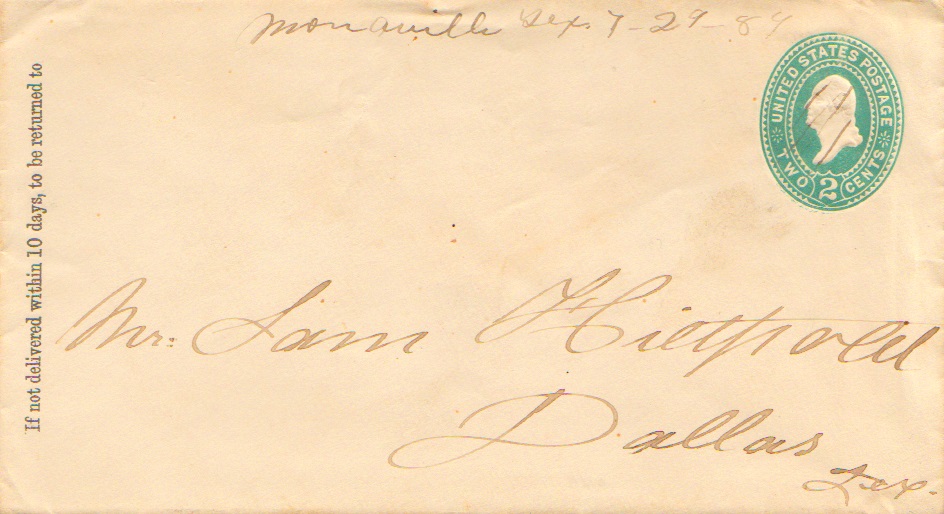 Monaville Tex. 7-29-89
UNITED STATES POSTAGE
TWO 2 CENTS
If not delivered within 10 days, to be returned to
Mr. Sam
Dallas
Tex.